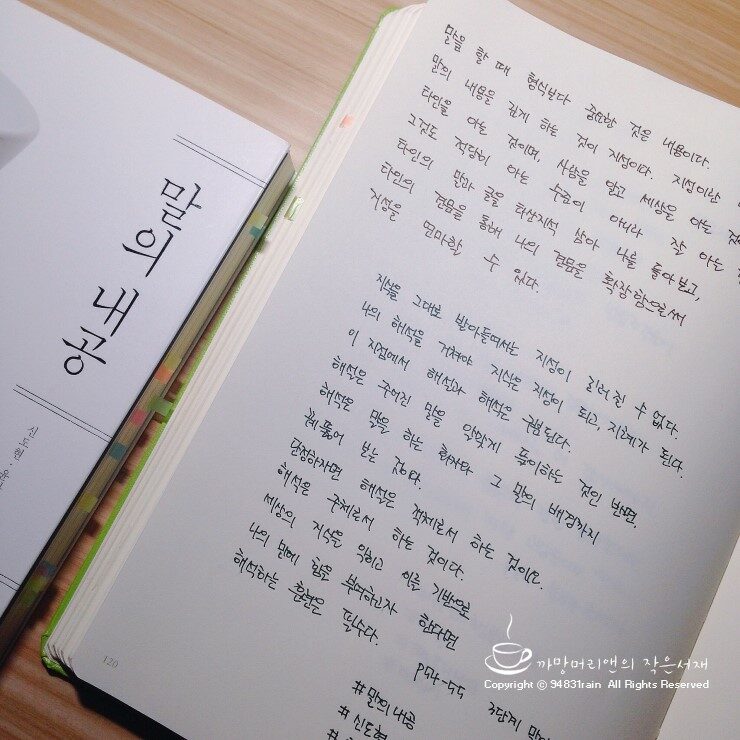 말의 내공
신도현·윤
말을 할 때 형식보다 중요한 것은 내용이다.
말의 내용을 깊게 하는 것이 지성이다. 지성이란
타인을 아는 것이며, 사람을 알고 세상을 아는
그것도 적당히 아는 수준이 아니라 잘 아는
타인의 말과 글을 타산지석 삼아 나를 돌아보고,
타인의 견문을 통해 나의 견문을 확장함으로써
지성을 연마할 수 있다.
지식을 그대로 받아들여서는 지성이 길러질 수 없다.
나의 해석을 거쳐야 지식은 지성이 되고, 지혜가 된다.
이 지점에서 해설과 해석은 구별된다.
해설은 주어진 말을 알맞게 풀이하는 것인 반면,
해석은 말을 하는 화자와 그 말의 배경까지
꿰뚫어 보는 것이다.
단정하자면 해설은 객체로서 하는 것이고,
해석은 주체로서 하는 것이다.
세상의 지식을 익히고 이를 기반으로
나의 말에 힘을 부여하고자 한다면
해석하는 훈련은 필수다.
p54-55
#말의내공
#신도현
120
까망머리앤의 작은서재
Copyright ⓒ 94831rain All Rights Reserved